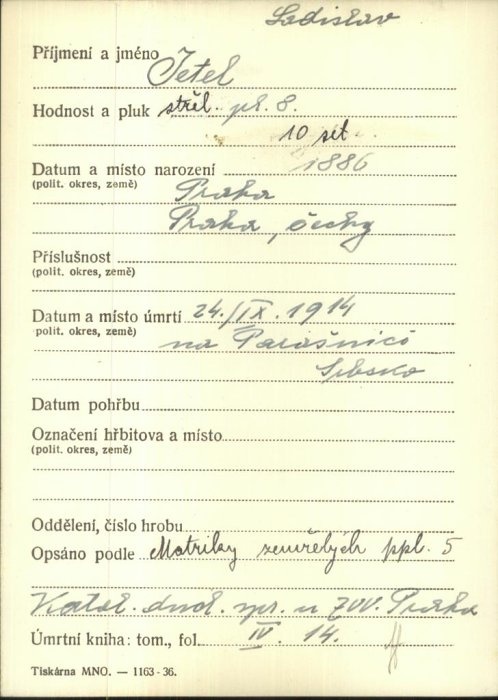 Ladislav
Příjmení a jméno Jetel
Hodnost a pluk střel. pl. 8.
10 set.
Datum a místo narození 1886
(polit. okres, země) Praha
Praha, Čechy
Příslušnost
(polit. okres, země)
Datum a místo úmrtí 24./IX. 1914
polit. okres, země) na Parašnici
Srbsko
Datum pohřbu
Označení hřbitova a místo
(polit. okres, země)
Oddělení, číslo hrobu
Opsáno podle Matriky zemřelých ppl. 5
Katol. duch. spr. u ZVV. Praha
Úmrtní kniha: tom., fol. IV. 14.
Tiskárna MNO. — 1163-36.